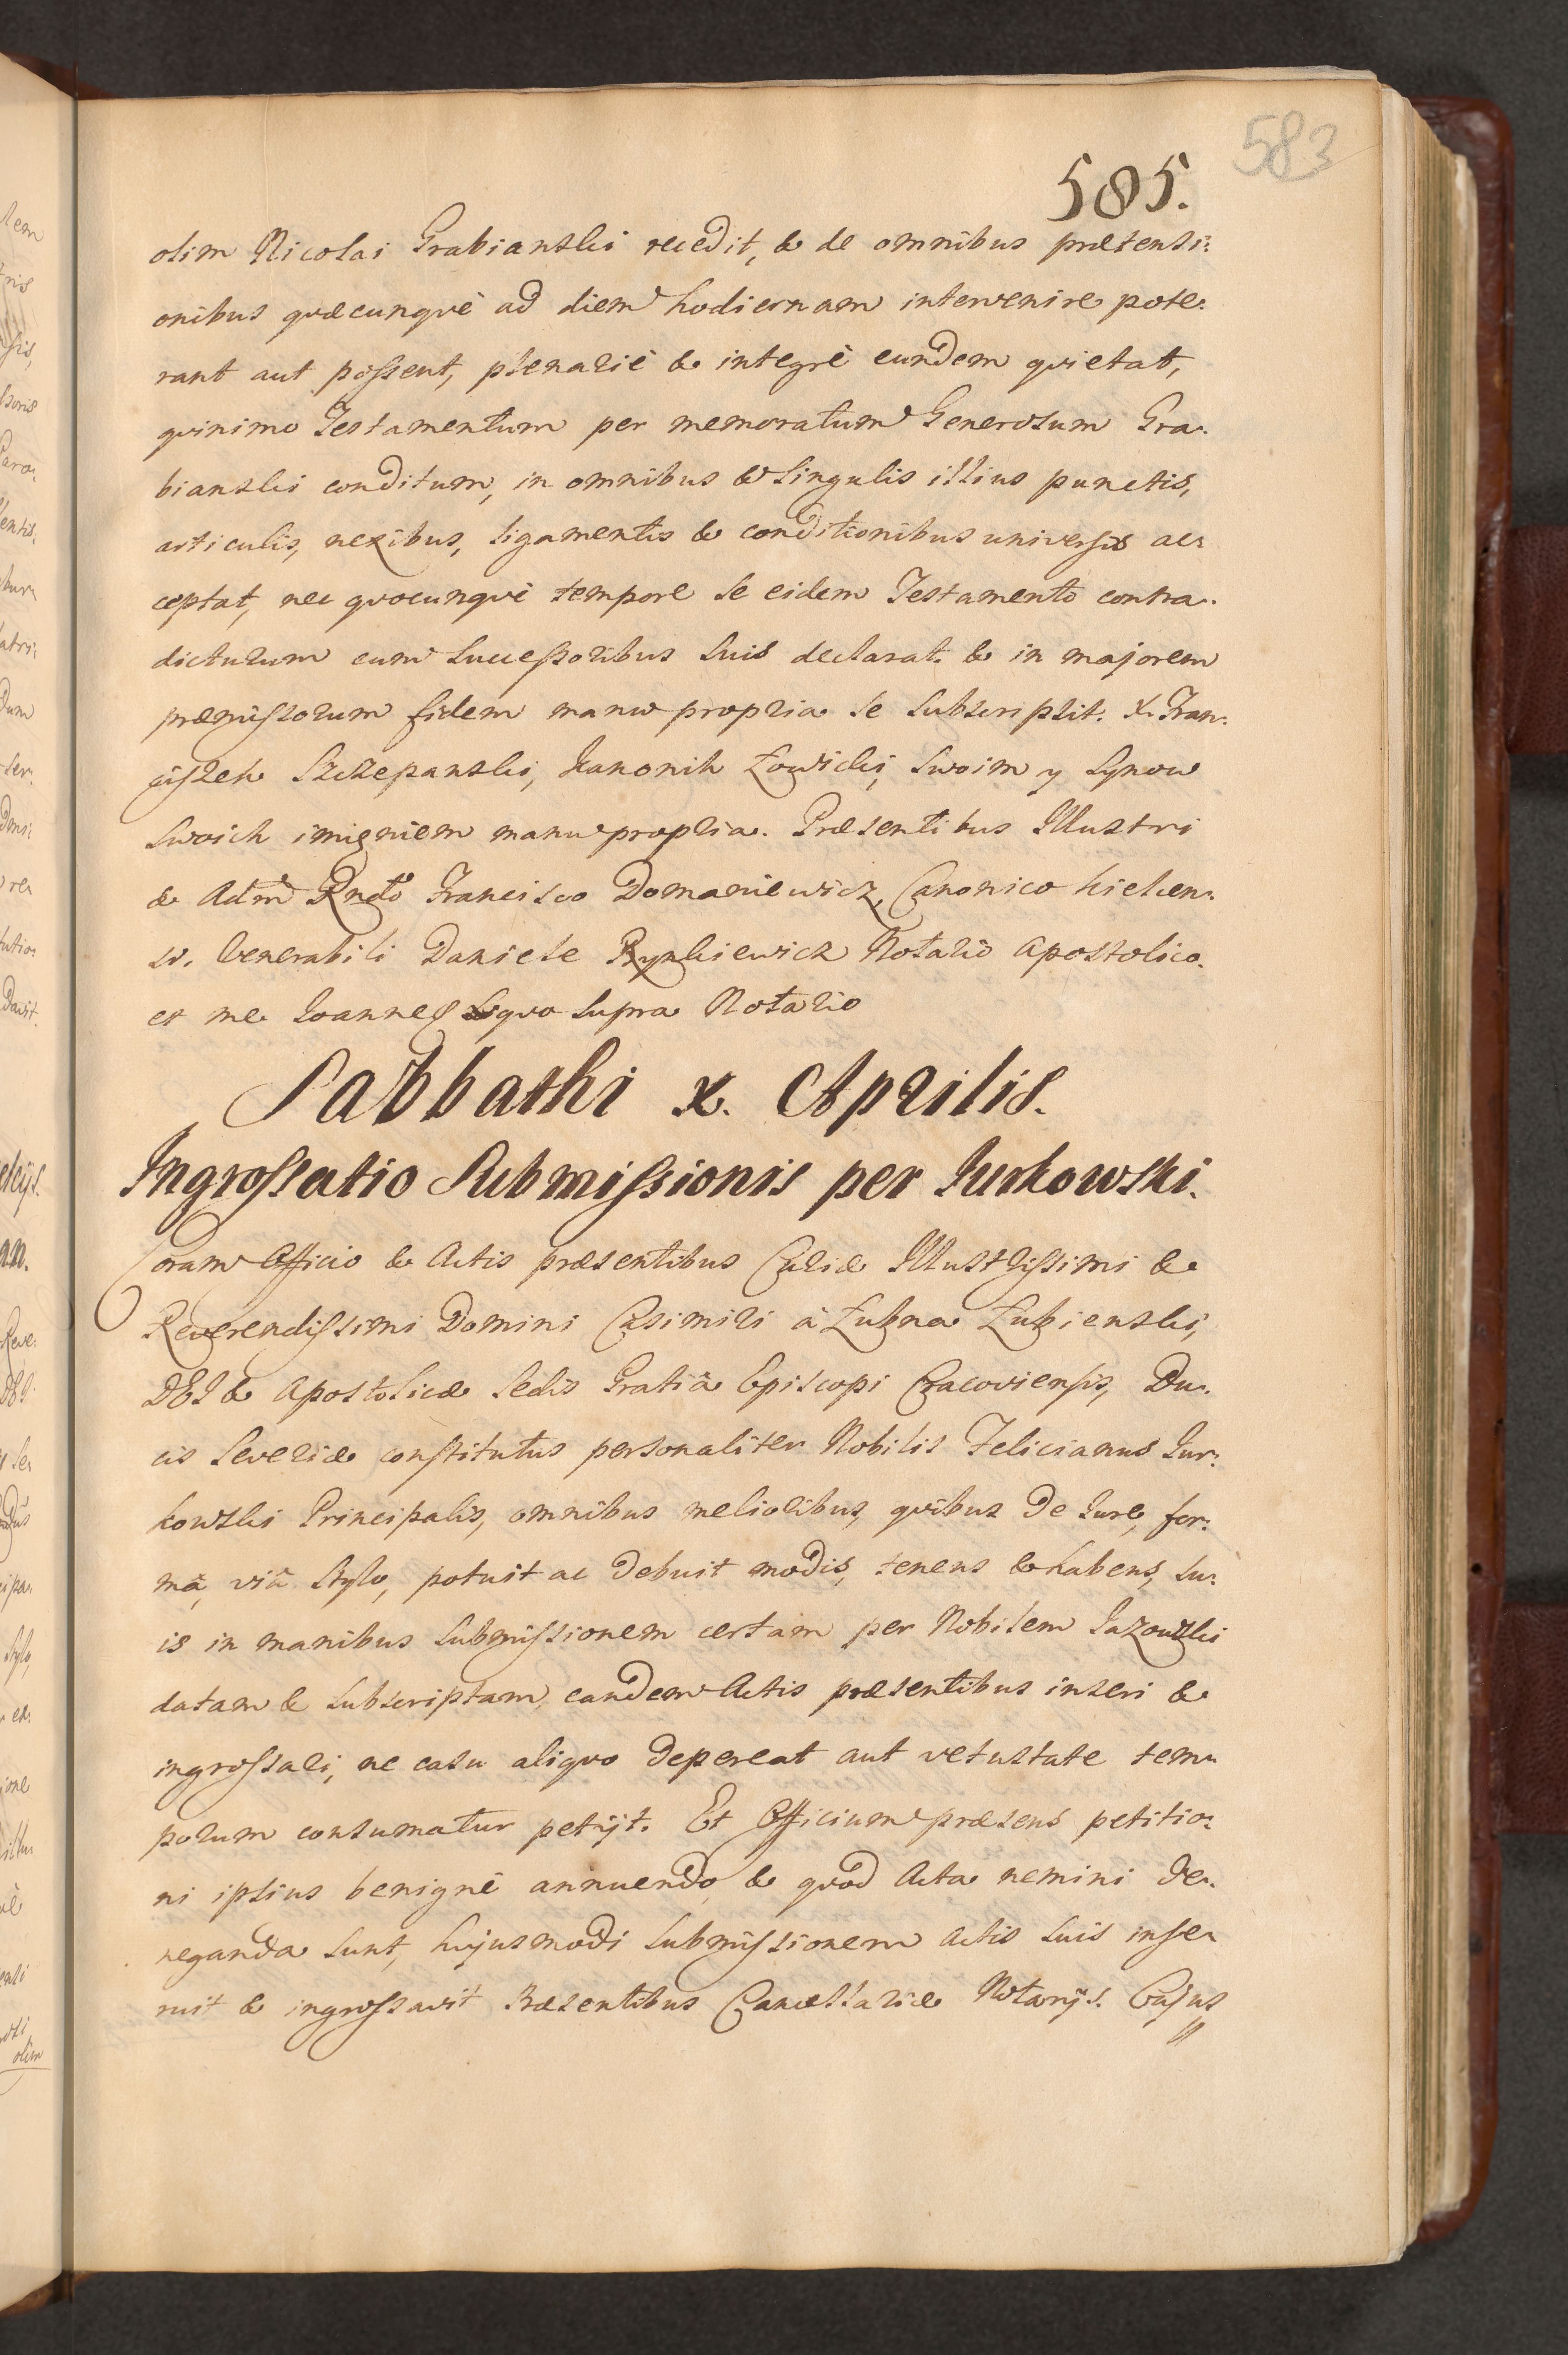 583
585.
olim Nicolai Grabianski recedit, & de omnibus prætensi:
onibus quæcunquè ad diem hodiernam intervenire pote:
rant aut possent, plenariè & integrè eundem quietat,
quinimo Testamentum per memoratum Generosum Gra:
bianski conditum, in omnibus & singulis illius punctis,
articulis, nexibus, ligamentis & conditionibus universis ac:
ceptat, nec quocunquè tempore se eidem Testamento contra:
dicturum cum successoribus suis declarat. & in majorem
præmissorum fidem manu propria se subscripsit. X. Fran:
ciszek Szczepanski, Kanonik Łowicki, swoim y synow
swoich imieniem manu propria. Præsentibus Illustri
& Adm Rndo Francisco Domaniewicz, Canonico Kielcen:
si. Venerabili Daniele Rynkiewicz Notario Apostolico.
et me Joanne quo supra Notario
Sabbathi x. Aprilis.
Ingrossatio Submissionis per Jurkowski.
Coram Officio & Actis præsentibus Curiæ Illustrissimi &
Reverendissimi Domini Casimiri à Łubna Łubienski,
DEI & Apostolicæ Sedis Gratiâ Episcopi Cracoviensis, Du:
cis Severiæ constitutus personaliter Nobilis Felicianus Jur:
kowski Principalis, omnibus melioribus, quibus de Jure, for:
mâ, viâ stylo, potuit ac debuit modis, tenens & habens, su:
is in manibus submissionem certam per Nobilem Jazowski
datam & subscriptam, eandem Actis præsentibus inseri &
ingrossari, ne casu aliquo depereat aut vetustate tem:
porum consumatur petijt. Et Officium præsens petitio:
ni ipsius benignè annuendo, & quod Acta nemini de:
neganda sunt, hujusmodi submissionem Actis suis inse:
ruit & ingrossavit Præsentibus Cancellariæ Notarijs. Cujus